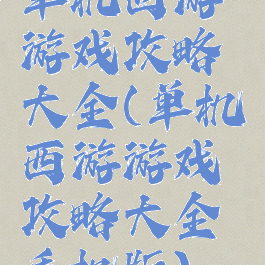 单机西游
游戏攻略
大全(单机
西游游戏
攻略大全
手机版)